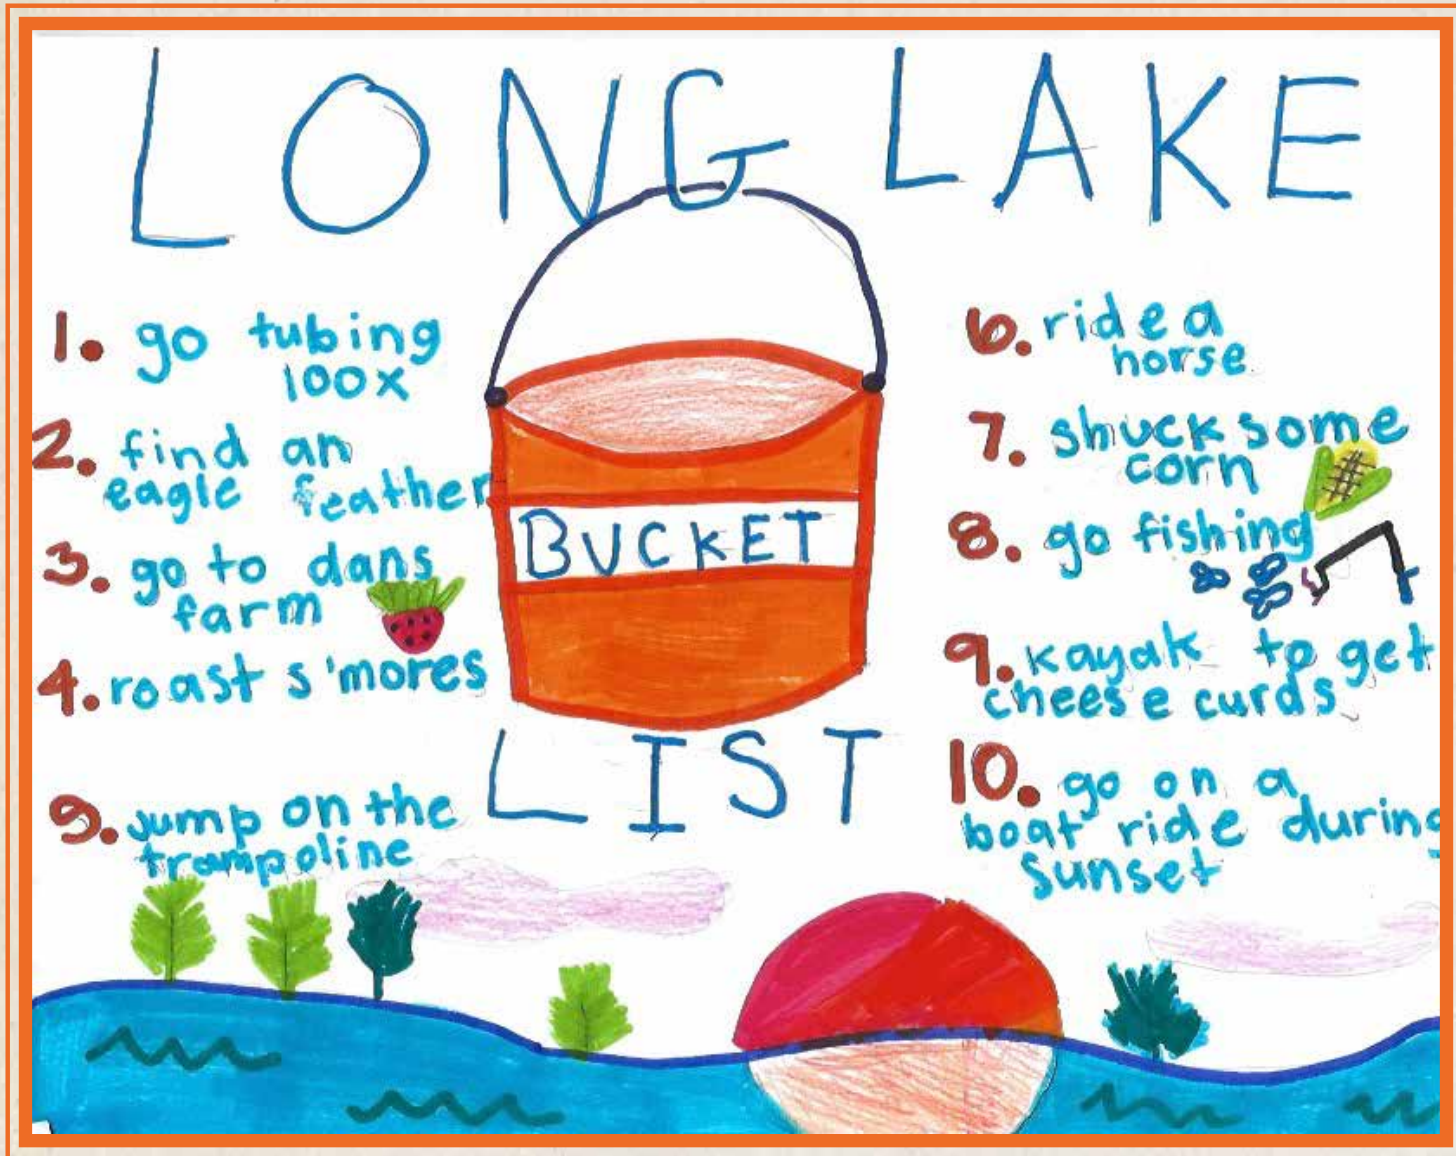 LONG LAKE
BUCKET
LIST
1. go tubing
100x
2. find an
eagle feather
3. go to dans
farm
4. roast s'mores
9. jump on the
trampoline
6. ride a
horse
7. shuck some
corn
8. go fishing
9. kayak to get
cheese curds
10. go on a
boat ride during
sunset